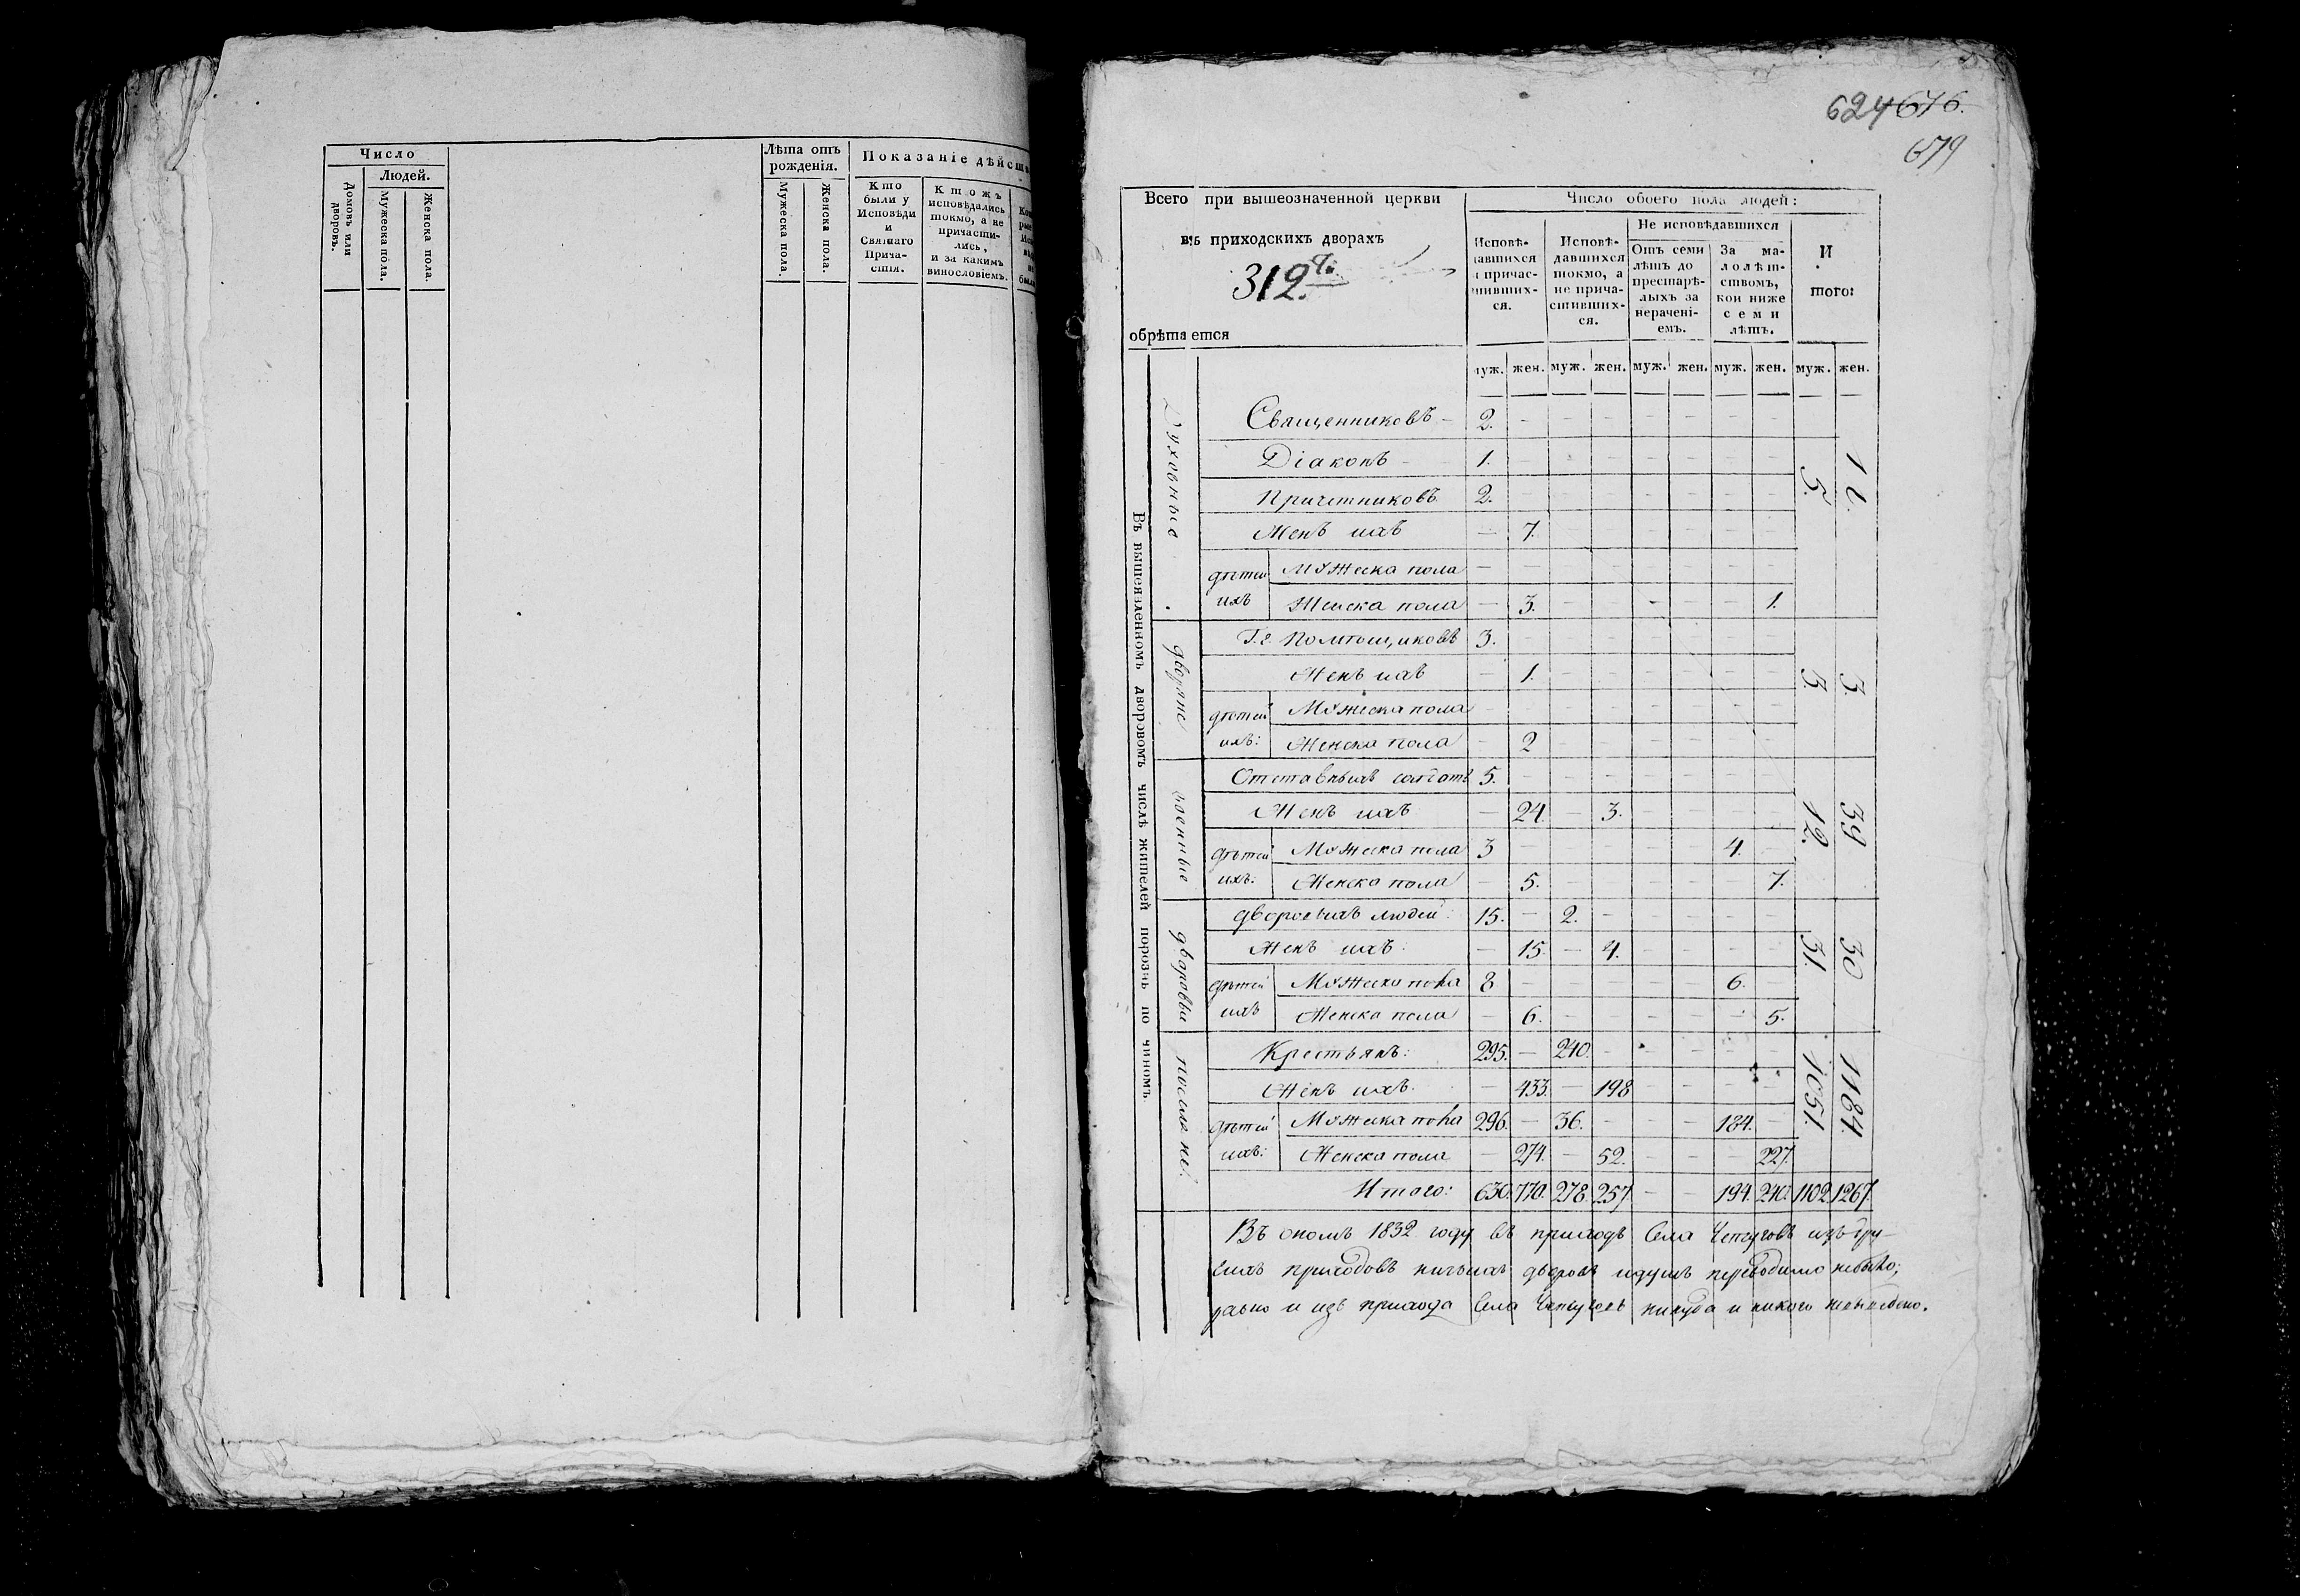 Число
Людей.
Домовъ или дворовъ.
Мужеска пола.
Женска пола.
Лѣта отъ рожденія.
Мужеска пола.
Женска пола.
Показаніе дѣйст
Кто были у Исповѣди и Святаго Прича-стія.
Ктожъ исповѣдались токмо, а не причасти-лись, и за какимъ винословіемъ.
624 676.
679
Всего при вышеозначенной церкви
въ приходскихъ дворахъ
312.
обрѣтается
Число обоего пола людей:
Исповѣ-давшихся и причас-тившихся.
Исповѣ-давшихся токмо, а не прича-стивших-ся.
Не исповѣдавшихся
Отъ семи лѣтъ до престарѣ-лыхъ за нерачені-емъ.
За ма-лолѣт-ствомъ, кои ниже семи лѣтъ.
И того:
муж. жен. муж. жен. муж. жен. муж. жен. муж. жен.
Въ вышеявленномъ дворовомъ числѣ жителей порознь по чиномъ.
Духовные
Священниковъ 2. - - - - - - -
Діаконъ 1. - - - - - - -
Причетниковъ 2. - - - - - - -
Женъ ихъ - 7. - - - - - -
дѣтей ихъ
Мужеска пола - - - - - - - -
Женска пола - 3. - - - - - 1.
5. 11.
дворяне
Г.г. Помѣщиковъ 3. - - - - - - -
Женъ ихъ - 1. - - - - - -
дѣтей ихъ:
Мужеска пола - - - - - - - -
Женска пола - 2 - - - - - -
3. 3.
военные
Отставныхъ солдатъ 5. - - - - - - -
Женъ ихъ - 24 - 3. - - - -
дѣтей ихъ:
Мужеска пола 3 - - - - - 4. -
Женска пола - 5. - - - - - 7.
12. 39
дворовыи
дворовыхъ людей: 15. - 2. - - - - -
Женъ ихъ: - 15. - 4. - - - -
дѣтей ихъ
Мужеска пола 8 - - - - - 6. -
Женска пола - 6. - - - - - 5.
31. 30
поселяне.
Крестьянъ: 295. - 240. - - - - -
Женъ ихъ. - 433. - 198 - - - -
дѣтей ихъ:
Мужеска пола 296. - 36. - - - 184. -
Женска пола - 274. - 52. - - - 227.
1051. 1184.
Итого: 630. 770. 278. 257. - - 194. 240. 1102 1267.
Въ ономъ 1832 году въ приходъ Села Чепчуговъ изъ дру-
гихъ приходовъ ничьихъ дворовъ и душъ переводимо небыло;
равно и изъ прихода Села Чепчуговъ никуда и никого невыведено.